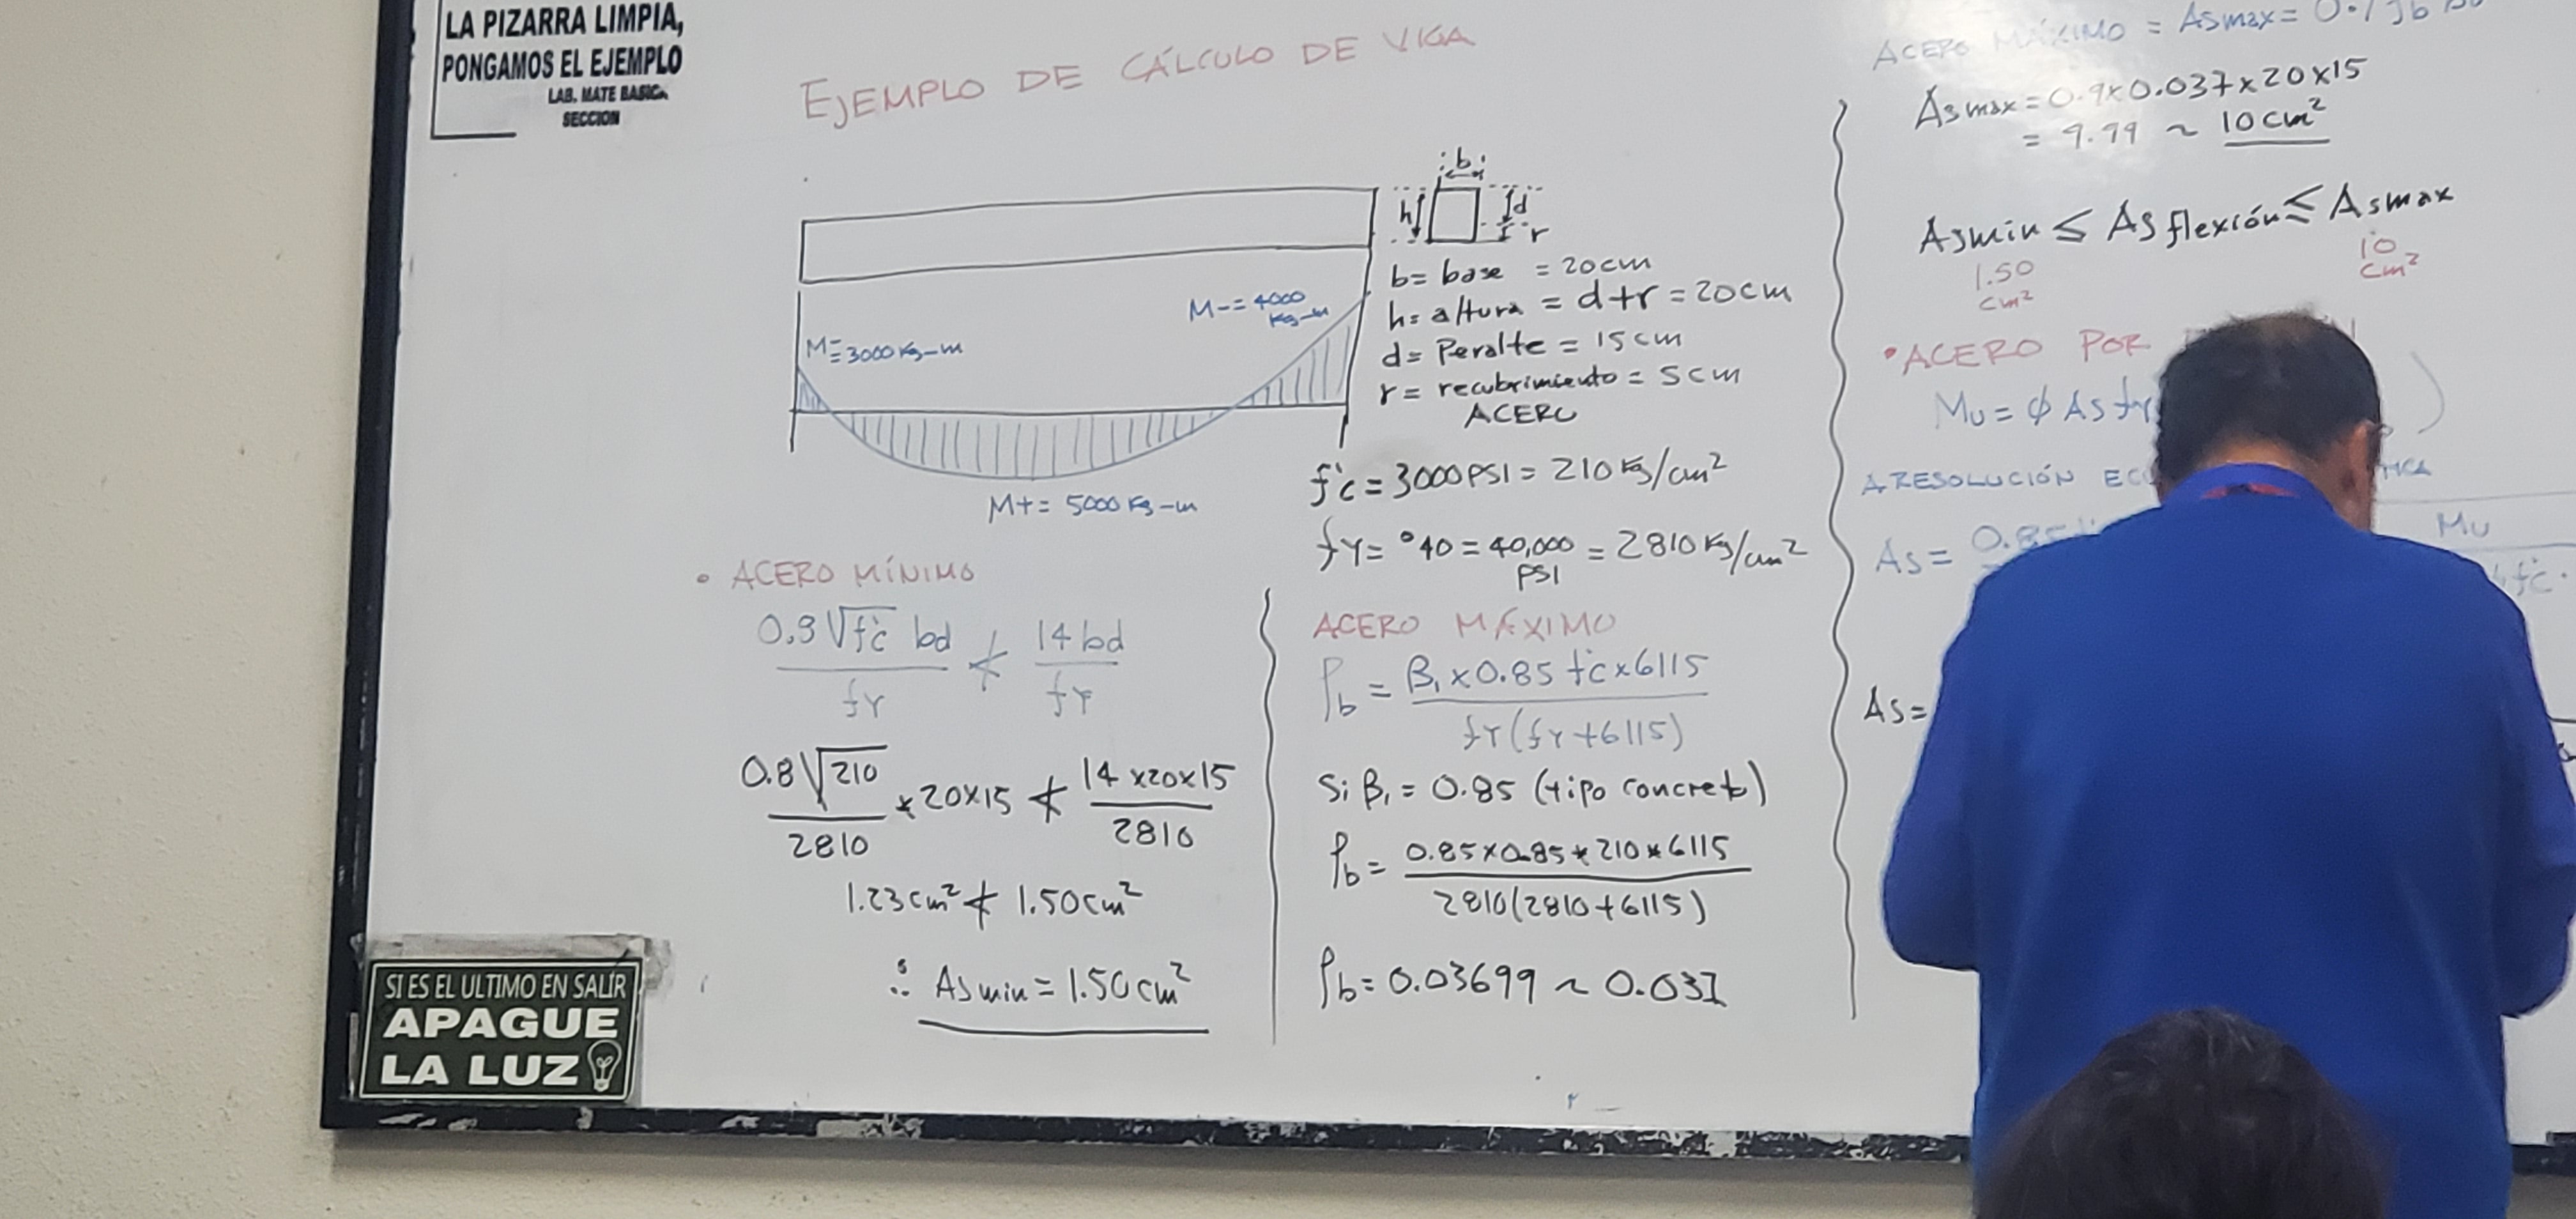 LA PIZARRA LIMPIA,
PONGAMOS EL EJEMPLO
LAB. MATE BASICA
SECCION
EJEMPLO DE CÁLCULO DE VIGA
b
h d
r
b= base = 20cm
h= altura = d+r = 20cm
d= Peralte = 15cm
r= recubrimiento = 5cm
ACERO
M-= 3000 Kg-m
M-= 4000
Kg-m
M+= 5000 Kg-m
f'c = 3000 PSI = 210 Kg/cm²
fy= °40 = 40,000 PSI = 2810 Kg/cm²
• ACERO MÍNIMO
0.8√f'c bd / fy ≮ 14bd / fy
0.8√210 / 2810 * 20x15 ≮ 14x20x15 / 2810
1.23cm² ≮ 1.50cm²
∴ Asmin = 1.50cm²
ACERO MÁXIMO
ρb = β₁x0.85 f'c x6115 / fy(fy+6115)
Si β₁ = 0.85 (tipo concreto)
ρb = 0.85x0.85*210*6115 / 2810(2810+6115)
ρb= 0.03699 ~ 0.037
ACERO MÁXIMO = Asmax=
Asmax = 0.9x0.037x20x15
= 9.99 ~ 10cm²
Asmin ≤ As flexión ≤ Asmax
1.50 cm² 10 cm²
• ACERO POR
Mu = φ As fy
RESOLUCIÓN
As = 0.85 Mu
f'c
As=
SI ES EL ULTIMO EN SALIR
APAGUE
LA LUZ